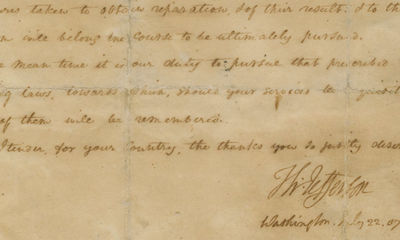 res taken to obtain reparation, & of their result: & to th
n will belong the course to be ultimately pursued.
e mean time it is our duty to pursue that prescribed
g laws, towards which, should your services be
of them will be remembered.
I tender, for your Country, the thanks you so justly deser
Th: Jefferson
Washington. 22. 07